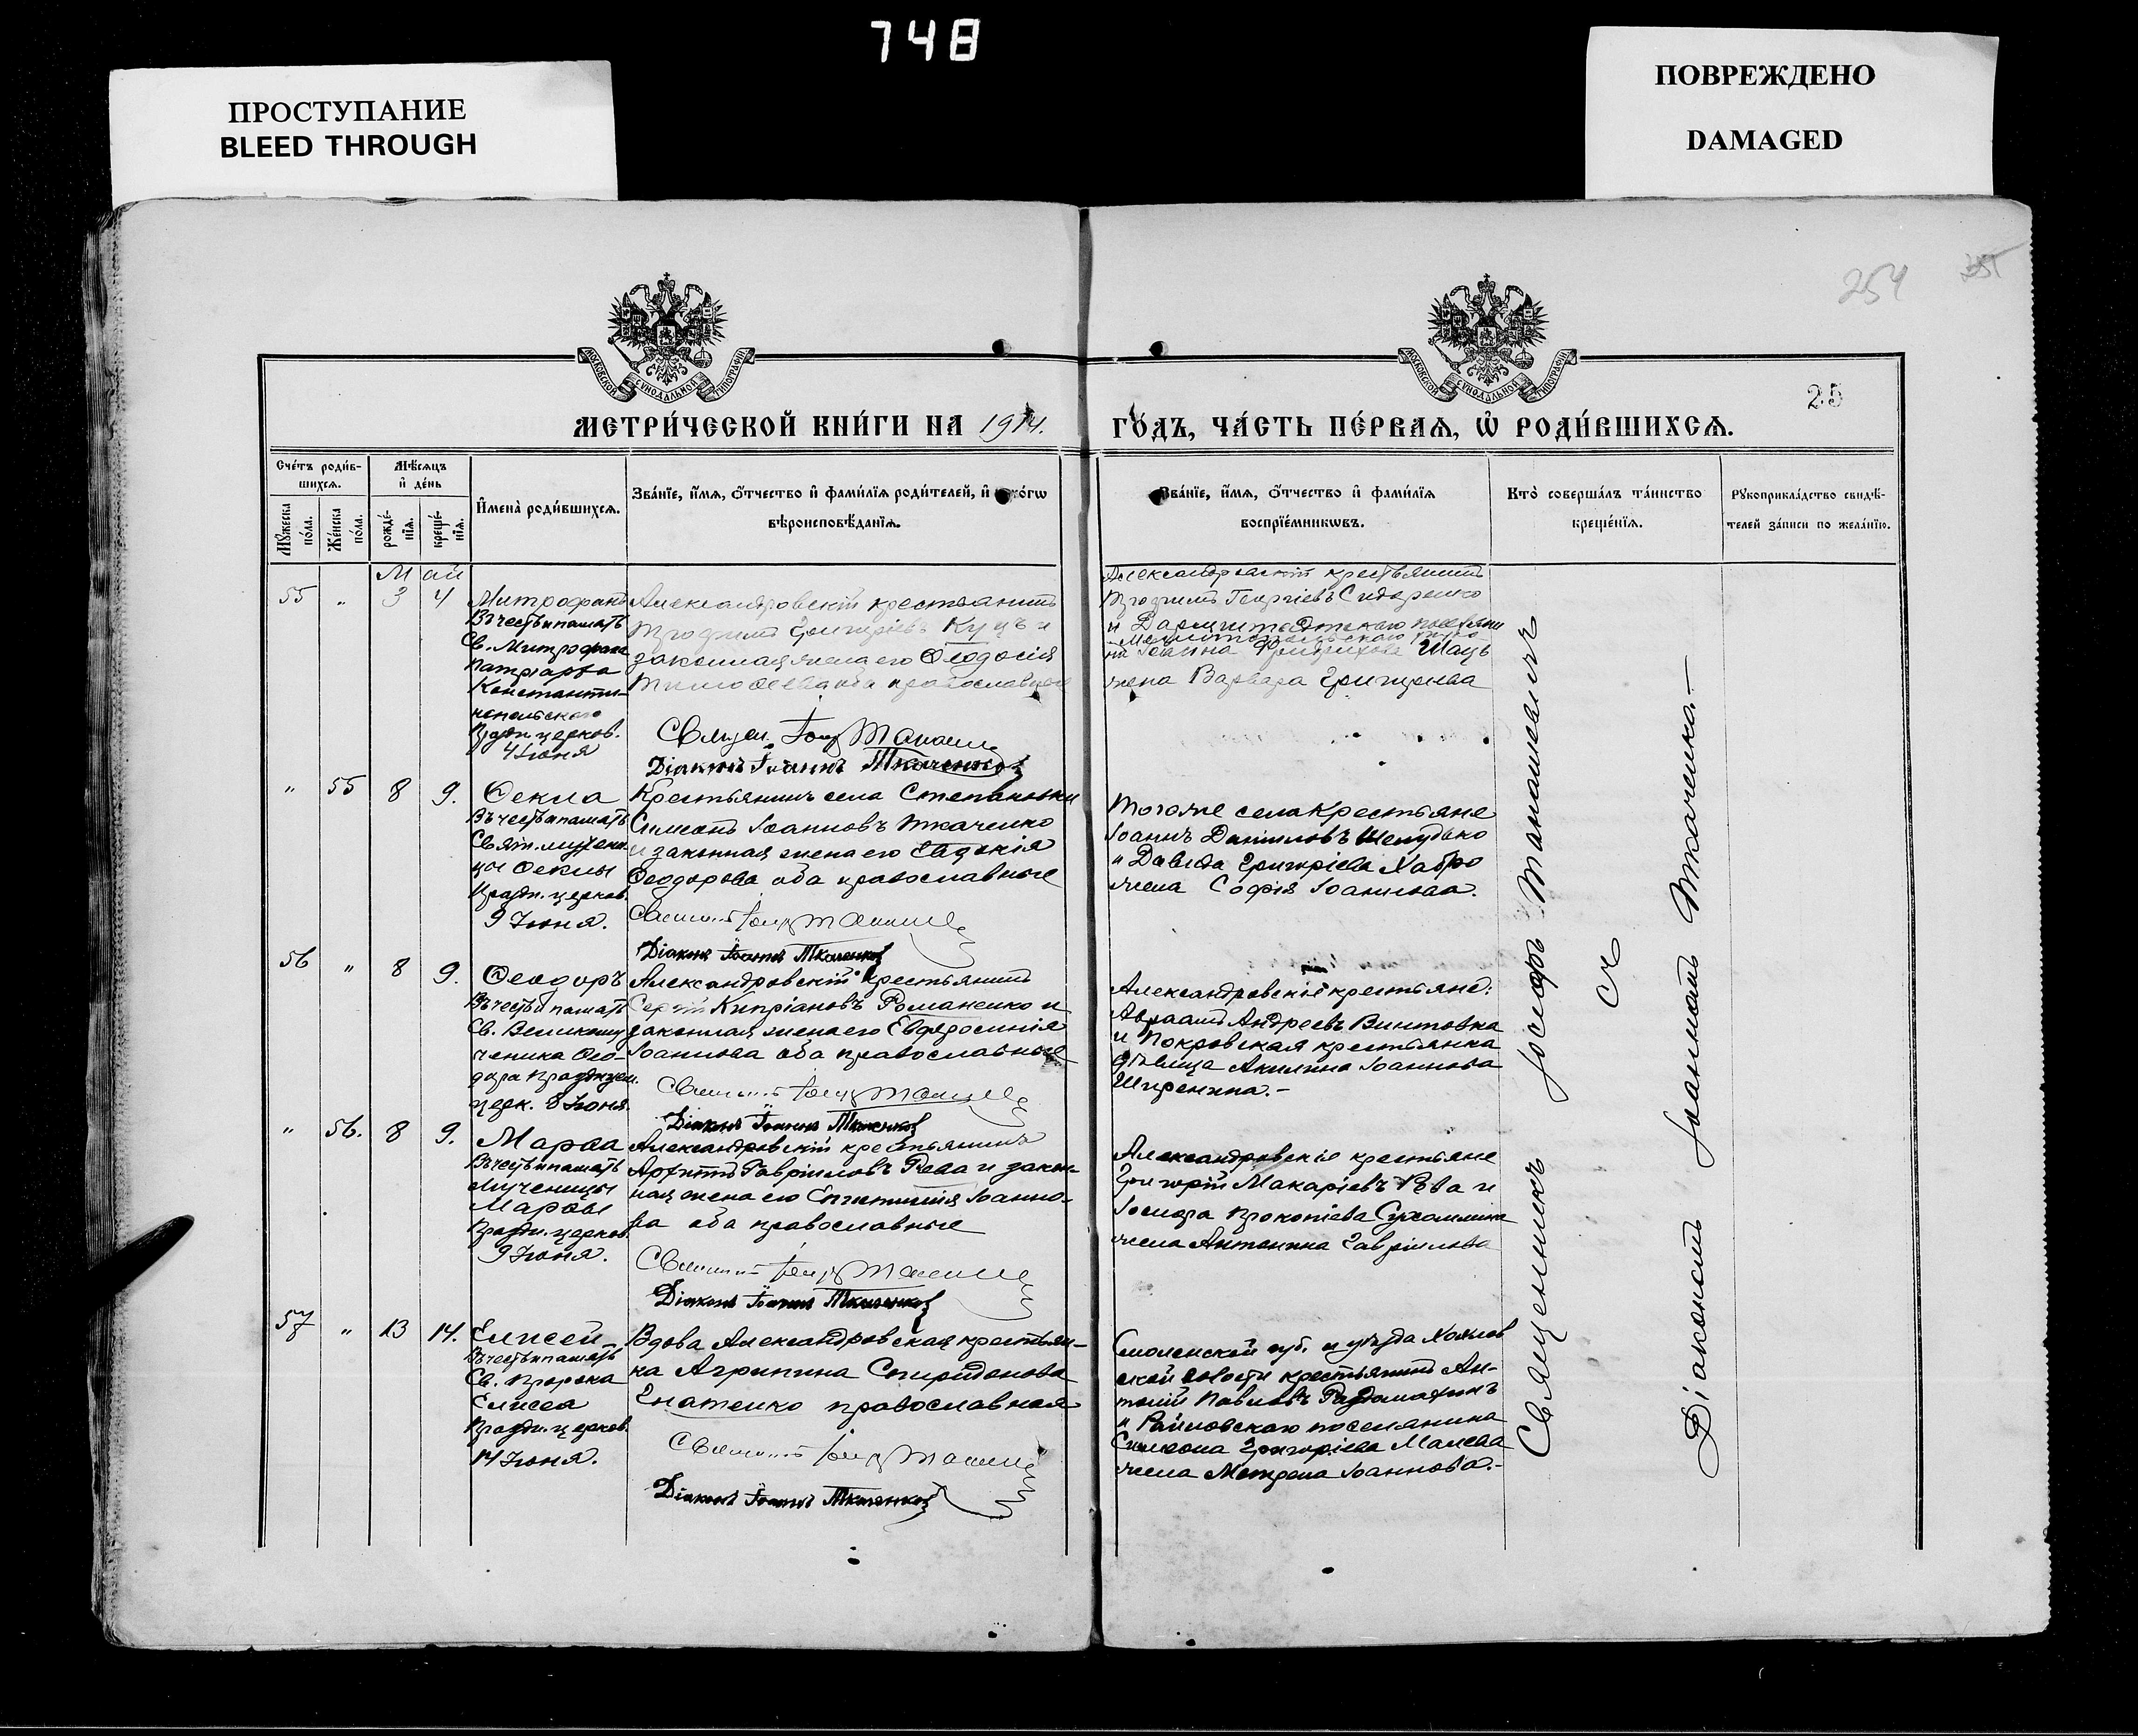 748
ПРОСТУПАНИЕ
BLEED THROUGH
ПОВРЕЖДЕНО
DAMAGED
254
25
МОСКОВСКОЙ СѴНОДАЛЬНОЙ ТИПОГРАФІИ
МОСКОВСКОЙ СѴНОДАЛЬНОЙ ТИПОГРАФІИ
МЕТРИ́ЧЕСКОЙ КНИ́ГИ НА 1914.
ГО́ДЪ, ЧА́СТЬ ПЕ́РВАѦ, Ѡ҆ РОДИ́ВШИХСѦ.
Сче́тъ роди́в-
шихсѧ.
Мꙋ́жеска
по́ла.
Же́нска
по́ла.
Мѣ́сѧцъ
и҆ де́нь
рожде́-
нїѧ.
креще́-
нїѧ.
И҆мена̀ роди́вшихсѧ.
Зва́нїе, и҆́мѧ, ѻ҆́тчество и҆ фами́лїѧ роди́телей, и҆
вѣроисповѣ́данїѧ.
Зва́нїе, и҆́мѧ, ѻ҆́тчество и҆ фами́лїѧ
воспрїе́мникѡвъ.
Кто̀ соверша́лъ та́инство
креще́нїѧ.
Рꙋкоприкла́дство свидѣ́-
телей за́писи по жела́нїю.
Май
55 " 3 4
Митрофанъ
Въ честь и память
Св. Митрофана
патріарха
Константи-
нопольскаго
Праздн. церков.
4 Іюня
Александровскій крестьянинъ
Трофимъ Григоріевъ Куцъ и
законная жена его Ѳеодосія
Тимоѳеева оба православные
Діаконъ Іоаннъ Ткаченко
Александровскій крестьянинъ
Трофимъ Георгіевъ Сидоренко
и Дармштадтскаго
Іоанна Фридрихова Шацъ
жена Варвара Григорьева
" 55 8 9.
Ѳекла
Въ честь и память
Свят. мучени-
цы Ѳеклы
Праздн. церков.
9 Іюня.
Крестьянинъ села Степановки
Симеонъ Іоанновъ Ткаченко
и законная жена его Евдокія
Ѳеодорова оба православные
Діаконъ Іоаннъ Ткаченко
Того же села крестьяне
Іоаннъ Даниловъ Шелудько
и Давида Григоріева Хабро
жена Софія Іоаннова.
56 " 8 9.
Ѳеодоръ
Въ честь и память
Св. Великому-
ченика Ѳео-
дора празднуем.
церк. 8 Іюня.
Александровскій крестьянинъ
Сергій Кипріановъ Романенко и
законная жена его Евфросинія
Іоаннова оба православные
Діаконъ Іоаннъ Ткаченко
Александровскіе крестьяне:
Авраамъ Андреевъ Винтовка
и Покровская крестьянка
дѣвица Акилина Іоаннова
" 56. 8 9.
Марѳа
Въ честь и память
Мученицы
Марѳы
Праздн. церков.
9 Іюня.
Александровскій крестьянинъ
Архипъ Гавріиловъ Рева и закон-
ная жена его Епистимія Іоанно-
ва оба православные
Діаконъ Іоаннъ Ткаченко
Александровскіе крестьяне
Григорій Макаріевъ Рева и
Іосифа Прокопіева Сухомлина
жена Антонина Гавріилова
57 " 13 14.
Елисей
Въ честь и память
Св. Пророка
Елисея
Праздн. церков.
14 Іюня.
Вдова Александровская крестьян-
ка Агрипина Спиридонова
Гнатенко православная
Діаконъ Іоаннъ Ткаченко
Смоленской губ. и уѣзда Хохлов
ской волости крестьянинъ Ан-
тоній Павловъ
и Райновскаго поселянина
Симеона Григоріева Малева
жена Матрена Іоаннова.-
Священникъ Іосифъ
съ
Діакономъ Іоанномъ Ткаченко.-